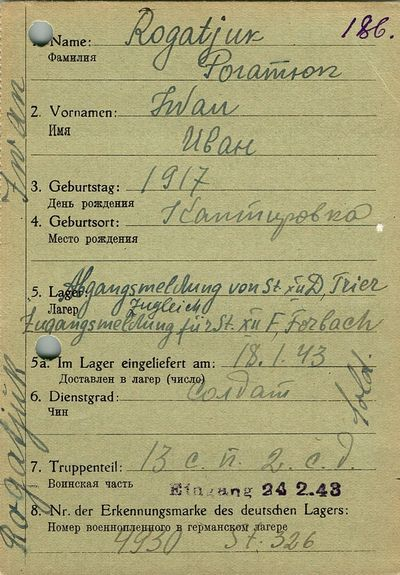 186.
1. Name: Rogatjuk
Фамилия
Рогатюк
2. Vornamen: Iwan
Имя
Иван
3. Geburtstag: 1917
День рождения
4. Geburtsort: Кантировка
Место рождения
5. Lager: Abgangsmeldung von St. XII D, Trier
Лагер
Zugleich
Zugangsmeldung für St. XII F, Forbach
5a. Im Lager eingeliefert am: 18.1.43
Доставлен в лагер (число)
6. Dienstgrad: солдат
Чин
Sold.
7. Truppenteil: 13 с. п. 2. с. д.
Воинская часть
Eingang 24 2.43
8. Nr. der Erkennungsmarke des deutschen Lagers:
Номер военнопленного в германском лагере
4930 St. 326
Rogatjuk Iwan